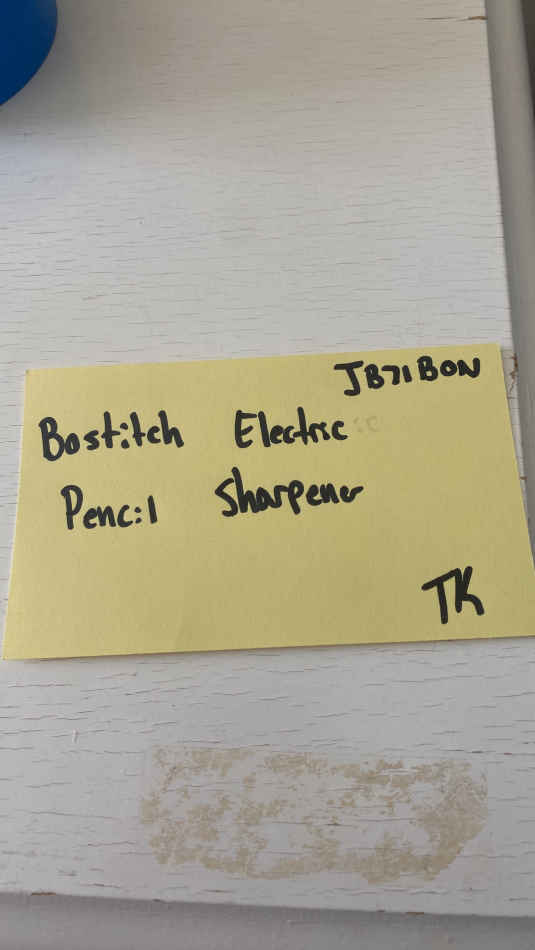 JB71BON
Bostitch Electric
Pencil Sharpener
TK